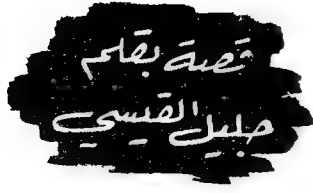 قصة بقلم
جليل القيسي